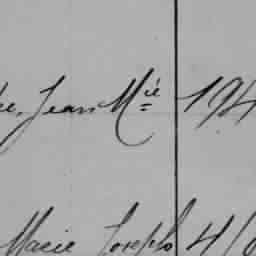 Jean Mie 194
Marie Joseph 4